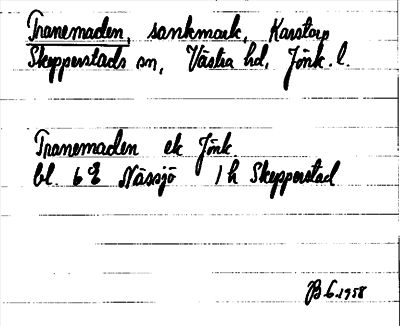 Tranemaden, sankmark, Karstorp
Skepperstads sn, Västra hd, Jönk. l.
Tranemaden ek Jönk.
bl. 6E Nässjö 1h Skepperstad
B 6.1958